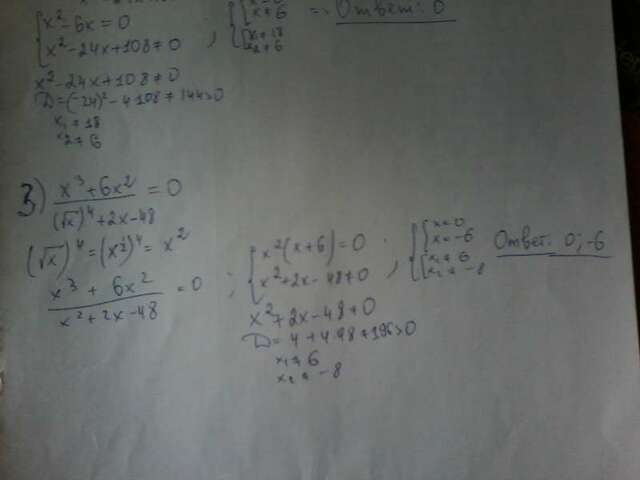 x² - 6x = 0
x² - 24x + 108 ≠ 0 ,
x ≠ 6
x₁ ≠ 18
x₂ ≠ 6
=> Ответ: 0
x² - 24x + 108 ≠ 0
D = (-24)² - 4·108 = 144 > 0
x₁ ≠ 18
x₂ ≠ 6
3) (x³ + 6x²) / ((√x)⁴ + 2x - 48) = 0
(√x)⁴ = (x^½)⁴ = x²
(x³ + 6x²) / (x² + 2x - 48) = 0 ;
x²(x + 6) = 0
x² + 2x - 48 ≠ 0 ,
x = 0
x = -6
x₁ ≠ 6
x₂ ≠ -8
Ответ: 0; -6
x² + 2x - 48 ≠ 0
D = 4 + 4·48 = 196 > 0
x₁ ≠ 6
x₂ ≠ -8